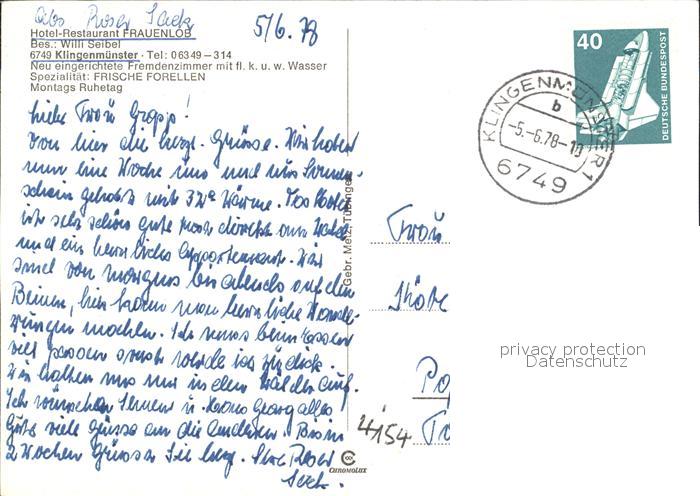 Abs Roser Seck
5/6. 78
Hotel-Restaurant FRAUENLOB
Bes.: Willi Seibel
6749 Klingenmünster · Tel: 06349 – 314
Neu eingerichtete Fremdenzimmer mit fl. k. u. w. Wasser
Spezialität: FRISCHE FORELLEN
Montags Ruhetag
Liebe Frau Gropp!
Von hier die herzl. Grüsse. Wir haben
nun eine Woche um und nur Sonnen-
schein gehabt mit 32° Wärme. Das Hotel
ist sehr schön gute Kost direkt am Wald
und ein herrliches Appartement. Wir
sind von morgens bis abends auf den
Beinen, hier kann man herrliche Wande-
rungen machen. Ich muss beim Essen
viel passen sonst werde ich zu dick.
Wir halten uns nur in den Wäldern auf.
Ich wünsche Ihnen u. Hans Georg alles
Gute viele Grüsse an die anderen. Bis in
2 Wochen Grüssen Sie herzl. Ihre Roser
Seck.
Gebr. Metz, Tübingen
CHROMOLUX
40
DEUTSCHE BUNDESPOST
KLINGENMÜNSTER 1
b
-5.-6.78-18
6749
Frau
4154
privacy protection
Datenschutz